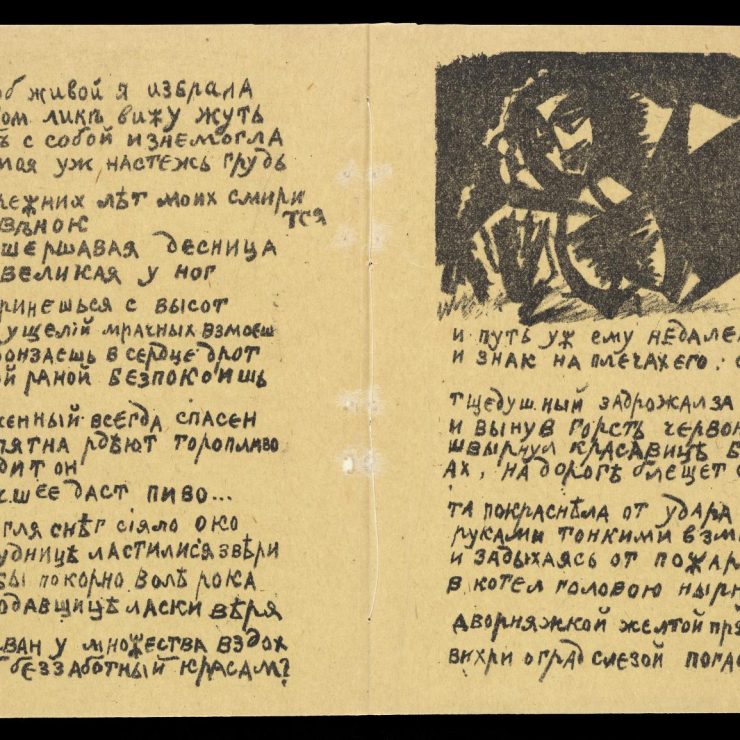 об живой я избрала
ом ликѣ вижу жуть
ъ с собой изнемогла
мая уж настежь грудь
ежних лѣт моих смири
тся
вѣною
шершавая десница
великая у ног
ринешься с высот
ущелій мрачных взмоеш
ронзаешь в сердце дрот
ой раной безпокоишь
женный всегда спасен
пятна рдѣют торопливо
дит он
шее даст пиво...
гля снѣг сіяло око
удницѣ ластилися звѣри
бы покорно волѣ рока
одавщицѣ ласки вѣря
ван у множества вздох
беззаботный красам?
и путь уж ему недале
и знак на плечах его:
тщедушный задрожал за
и вынув горсть червон
швырнул красавицѣ б
ах, на дорогѣ блещет
та покраснѣла от удара
руками тонкими взм
и задыхаясь от пожар
в котел головою нырн
дворняжкой желтой пр
вихри оград слезой пога